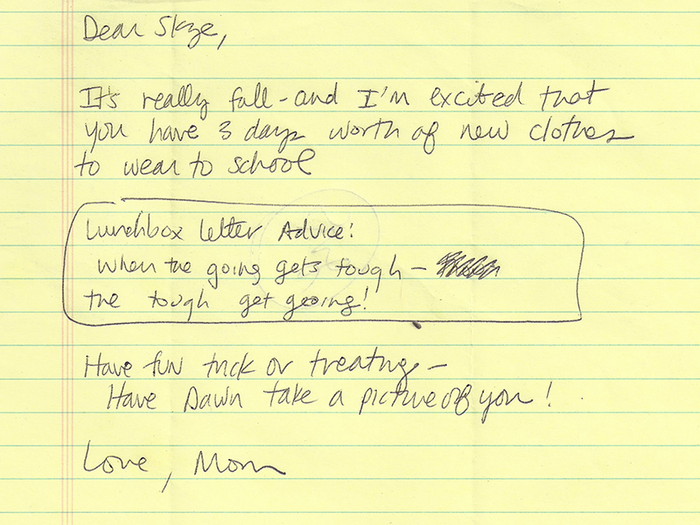 Dear Skye,
It's really fall - and I'm excited that
you have 3 days worth of new clothes
to wear to school
Lunchbox letter Advice:
when the going gets tough -
the tough get geoing!
Have fun trick or treating -
Have Dawn take a picture of you!
Love, Mom